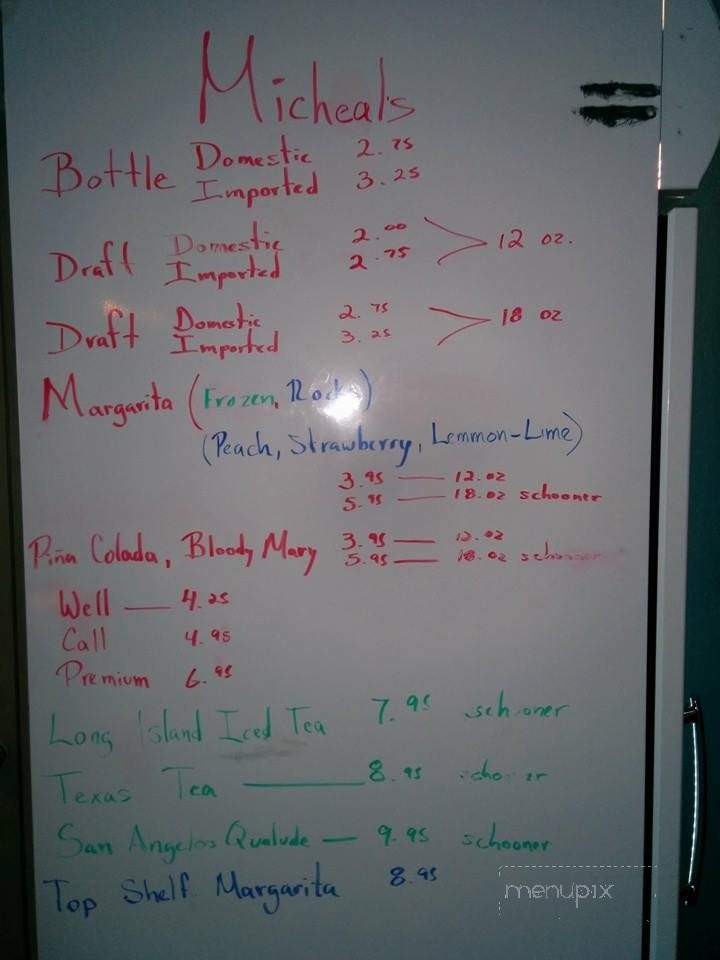 Micheal's
Bottle Domestic 2.75
Imported 3.25
Draft Domestic 2.00
Imported 2.75 12 oz.
Draft Domestic 2.75
Imported 3.25 18 oz
Margarita (Frozen, Rocks)
(Peach, Strawberry, Lemmon-Lime)
3.95 — 12.oz
5.95 — 18.oz schooner
Piña Colada, Bloody Mary 3.95 — 12.oz
5.95 — 18.oz schooner
Well — 4.25
Call 4.95
Premium 6.95
Long Island Iced Tea 7.95 schooner
Texas Tea — 8.95 schooner
San Angelos Qualude — 9.95 schooner
Top Shelf Margarita 8.95
menupix